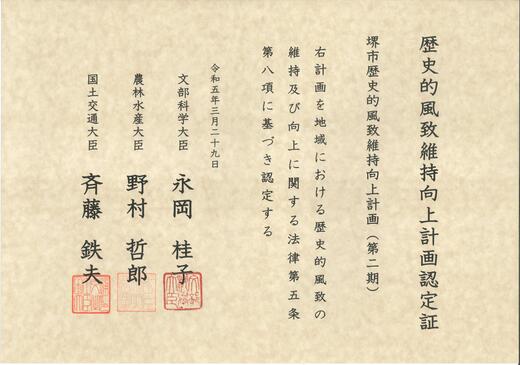 歴史的風致維持向上計画認定証
堺市歴史的風致維持向上計画（第二期）
右計画を地域における歴史的風致の
維持及び向上に関する法律第五条
第八項に基づき認定する
令和五年三月二十九日
文部科学大臣　永岡　桂子
農林水産大臣　野村　哲郎
国土交通大臣　斉藤　鉄夫